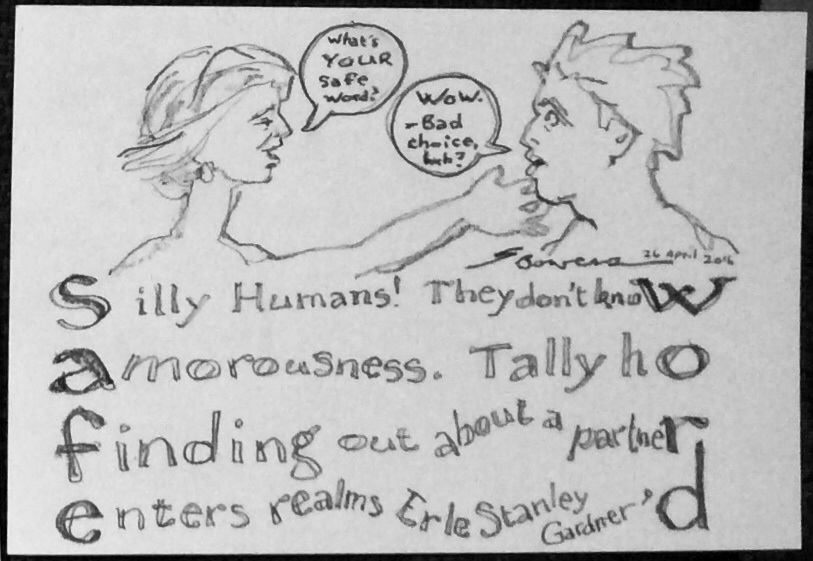 What's
YOUR
Safe
Word?
WoW.
-Bad
choice,
huh?
26 April 2016
Silly Humans! They don't know
amorousness. Tally ho
finding out about a partner
enters realms Erle Stanley Gardner'd